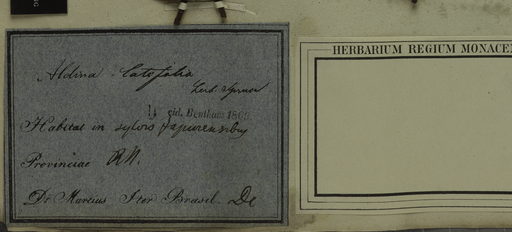 Aldina latifolia
Herb. Spruce
cid. Bentham 1869
Habitat in sylvis Japurensibus
Provinciae R.N.
Dr Martius Iter Brasil. De
HERBARIUM REGIUM MONACEN